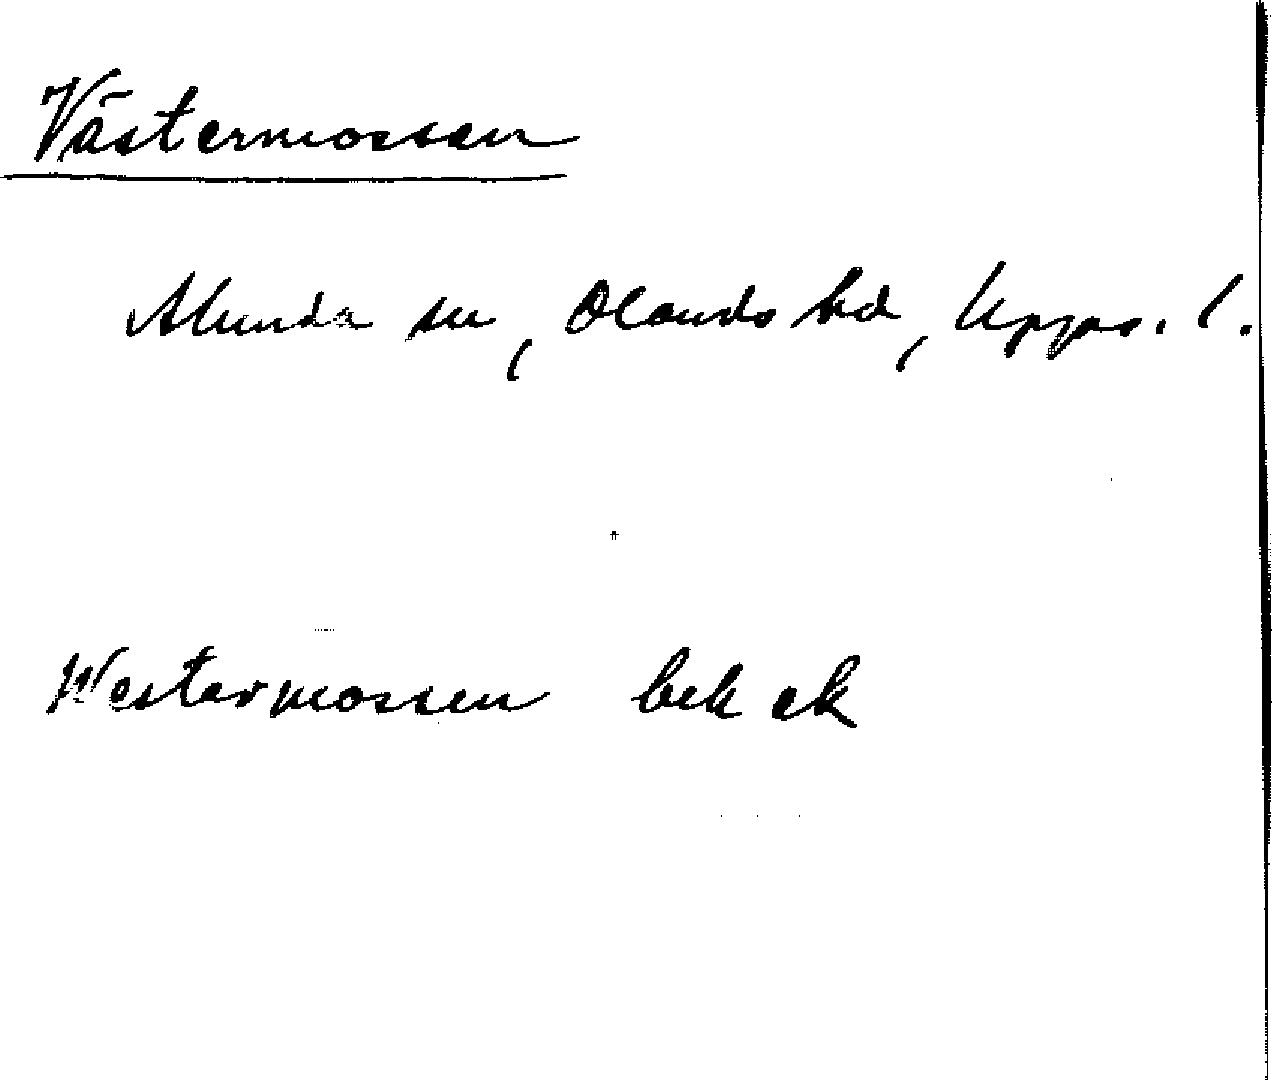 Västermossen
Alunda sn, Olands hd, Upps. l.
Westermossen bek ek